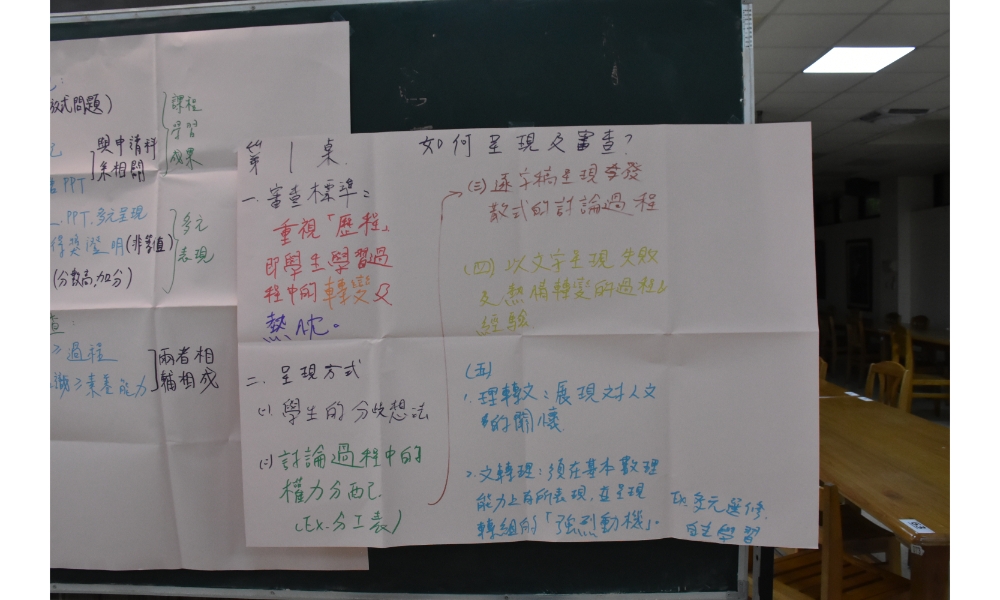 放式問題)
與申請科
系相關
PPT
PPT.多元呈現
得獎證明(非等值)
(分數高,加分)
課程
學習
成果
多元
表現
過程
素養能力
兩者相
輔相成
第1桌
如何呈現及審查?
一.審查標準:
重視「歷程」
即學生學習過
程中的轉變及
熱忱。
二.呈現方式
(一).學生的分歧想法
(二)討論過程中的
權力分配.
(Ex.分工表)
(三)逐字稿呈現
散式的討論過程
(四)以文字呈現失敗
及熱情轉變的過程
經驗
(五)
1.理轉文:展現對人文
的關懷
2.文轉理:須在基本數理
能力上有所表現,並呈現
轉組的「強烈動機」。
Ex.多元選修.
自主學習